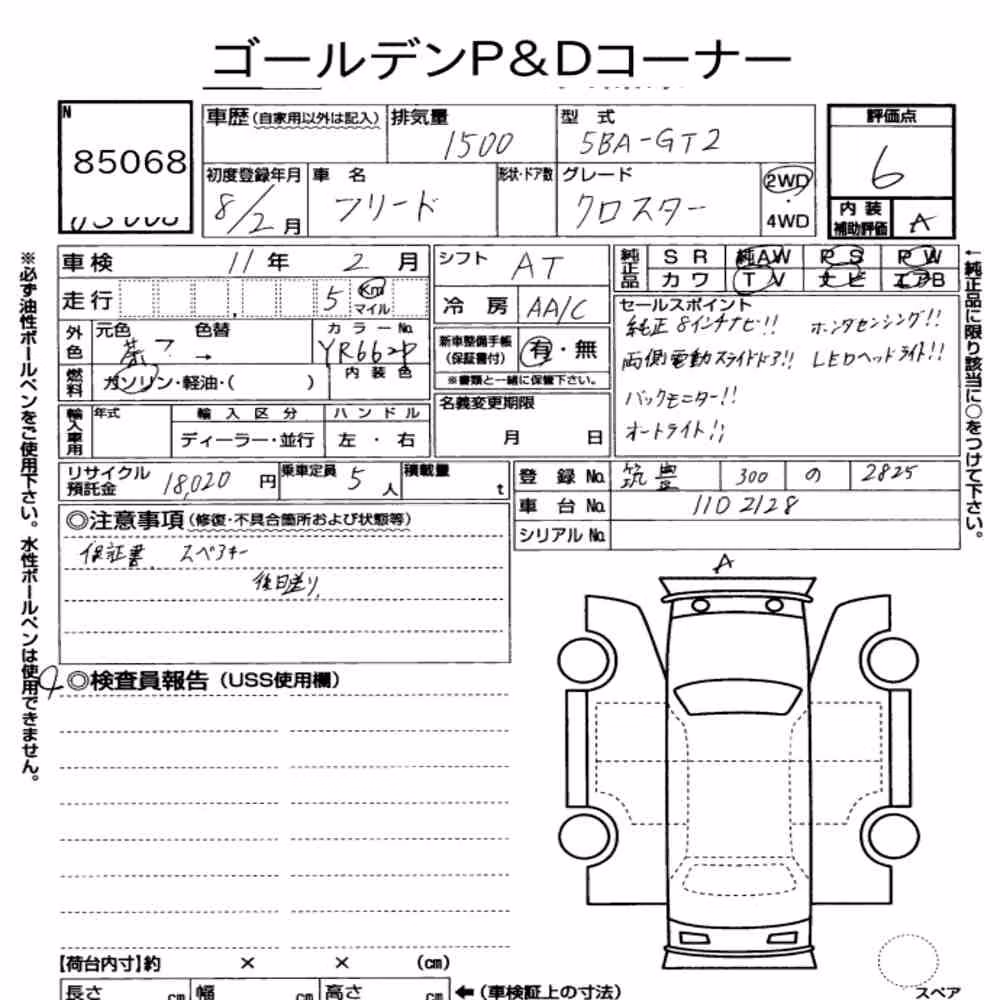 ゴールデンP&Dコーナー
N
85068
車歴 (自家用以外は記入)
排気量
1500
型 式
5BA-GT2
評価点
6
初度登録年月
8/2月
車 名
フリード
形状・ドア数
グレード
クロスター
2WD
・
4WD
内装補助評価
A
車検 11年 2月
走行 5 Km マイル
シフト AT
冷房 AA/C
純正品
SR 純AW PS PW
カワ TV ナビ エアB
セールスポイント
純正8インチナビ!! ホンダセンシング!!
両側電動スライドドア!! LEDヘッドライト!!
バックモニター!!
オートライト!!
外色
元色 茶 色替 →
カラーNo. YR662P
内装色
新車整備手帳 (保証書付) 有・無
※書類と一緒に保管下さい。
燃料
ガソリン・軽油・( )
輸入車用
年式
輸入区分
ディーラー・並行
ハンドル
左 ・ 右
名義変更期限
月 日
リサイクル預託金 18,020 円
乗車定員 5人
積載量 t
登録No. 筑豊 300 の 2825
車台No. 1102128
シリアルNo.
◎注意事項 (修復・不具合箇所および状態等)
保証書、スペアキー
後日送り
A
◎検査員報告 (USS使用欄)
【荷台内寸】約 × × (cm)
長さ cm 幅 cm 高さ cm ←(車検証上の寸法)
スペア
※必ず油性ボールペンをご使用下さい。水性ボールペンは使用できません。
←純正品に限り該当に○をつけて下さい。